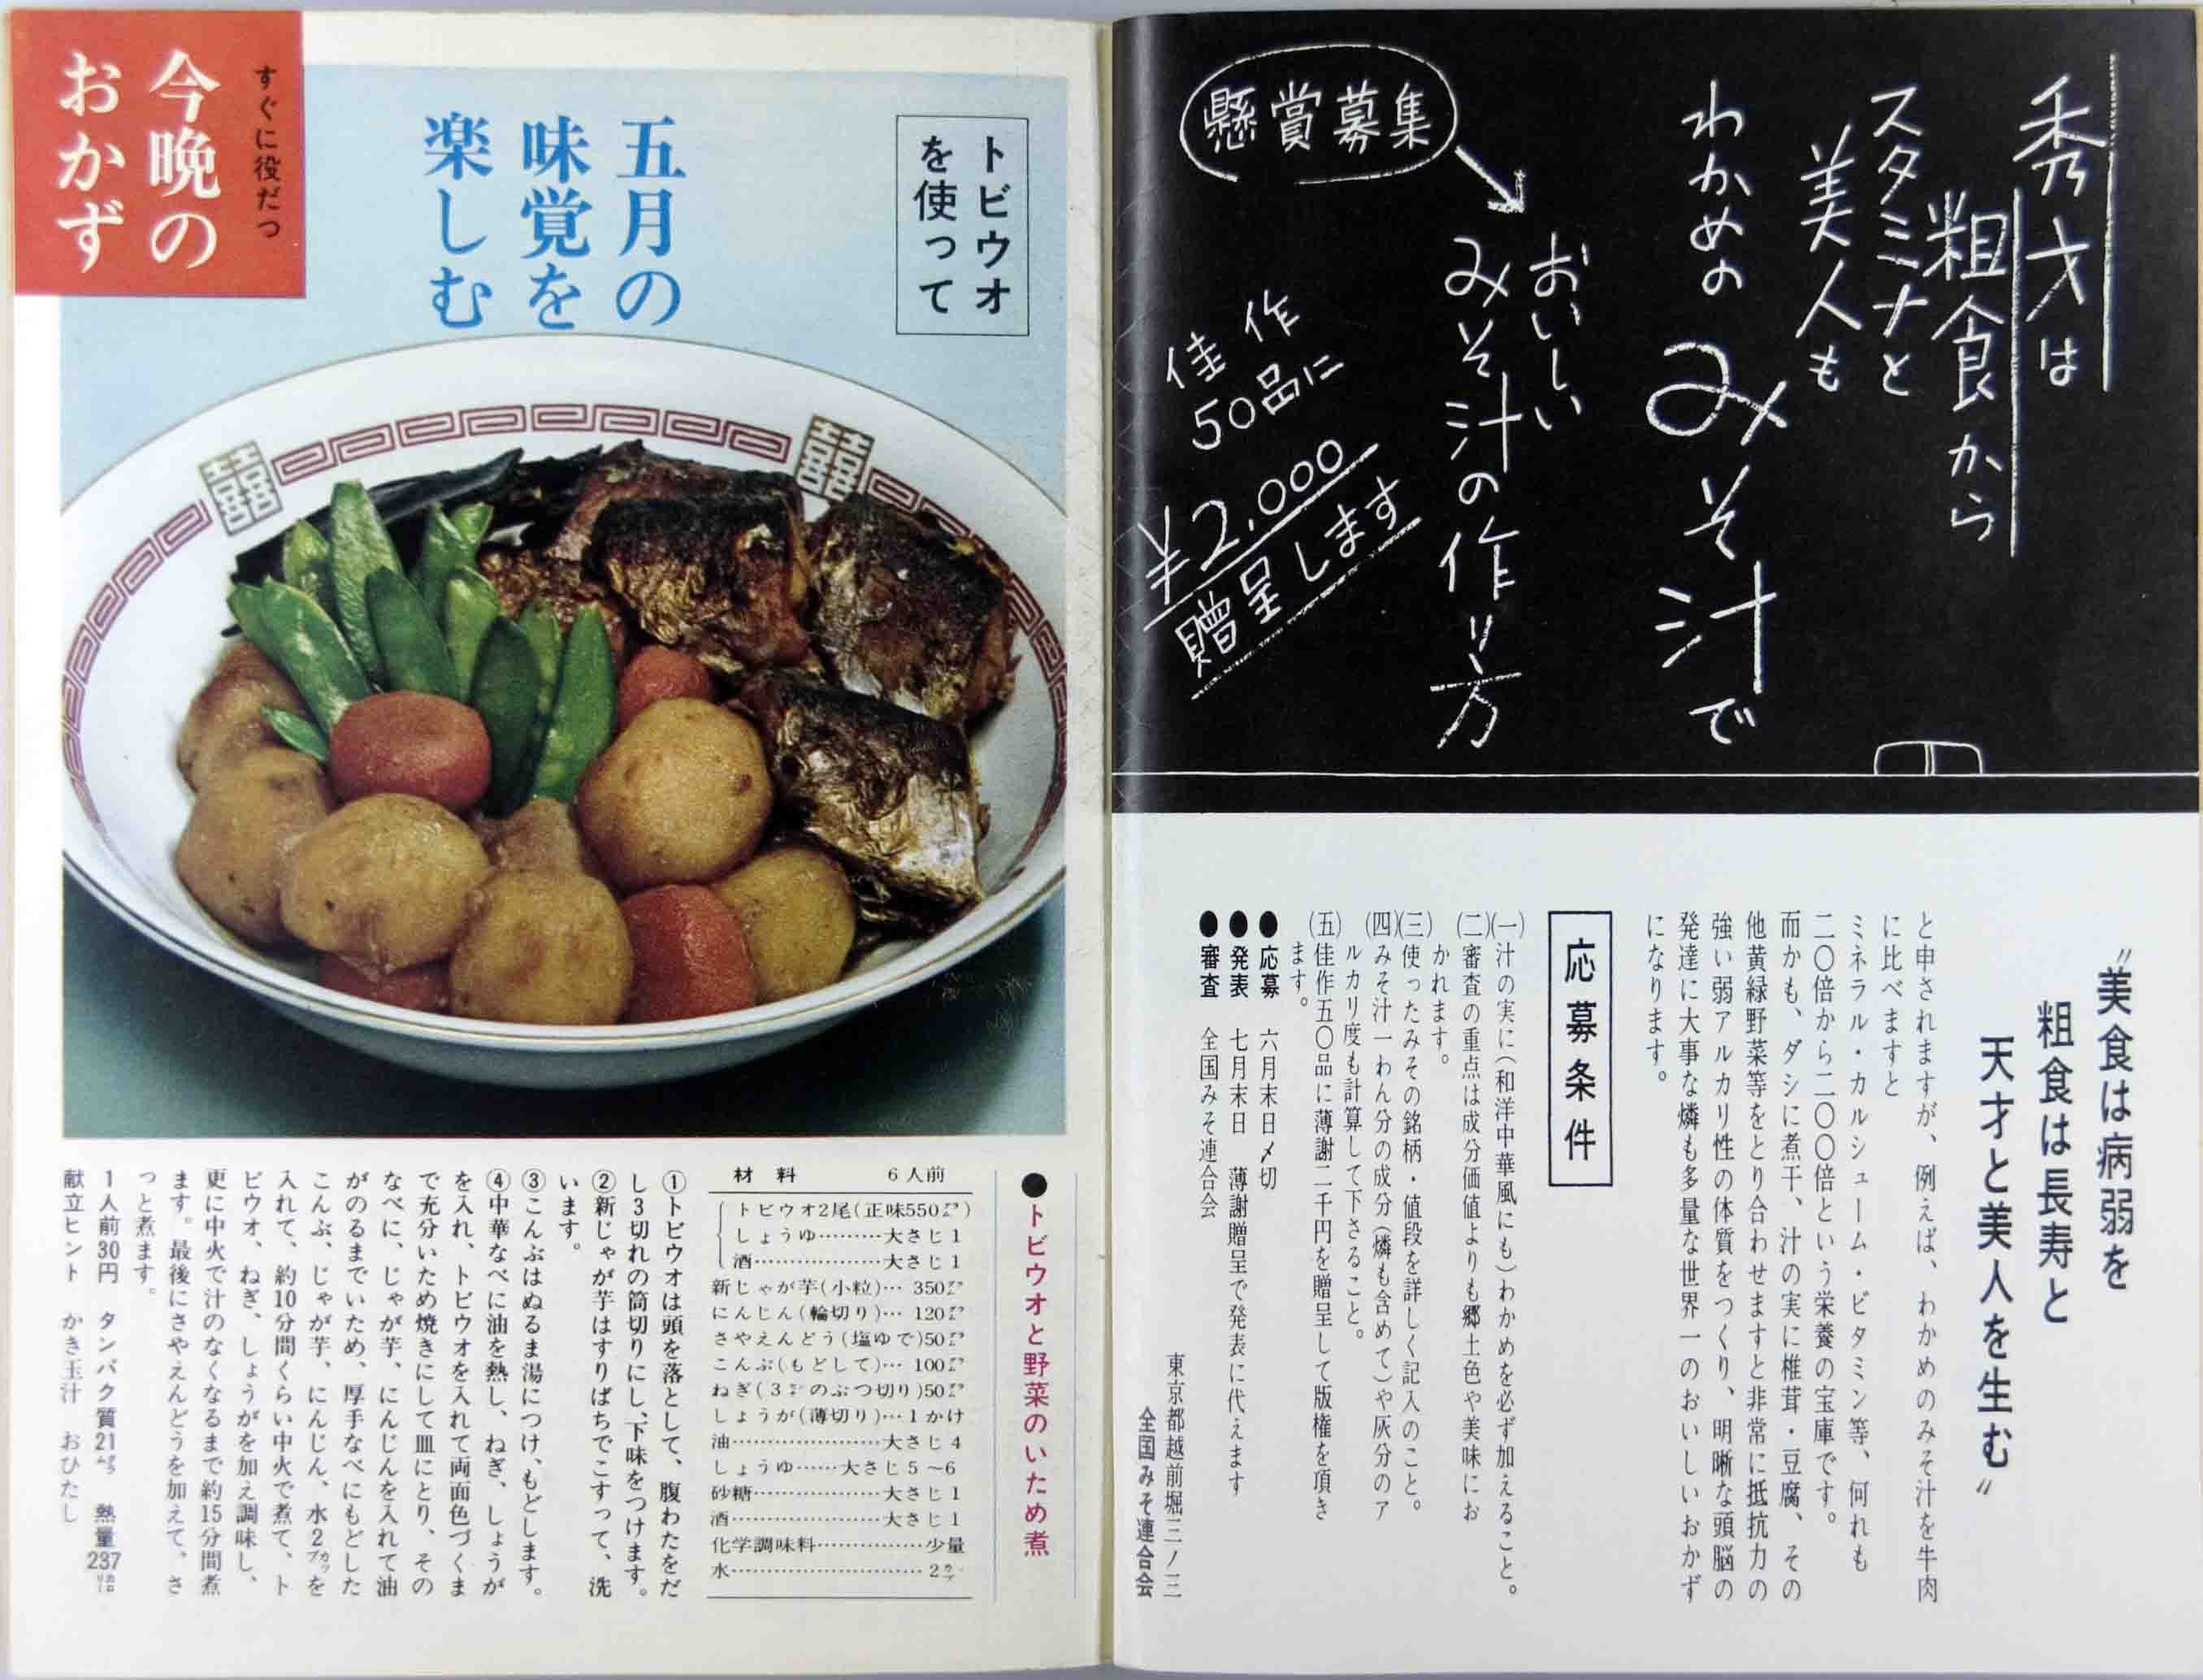 秀才は
粗食から
スタミナと
美人も
わかめの
みそ汁で
懸賞募集
おいしい
みそ汁の作り方
佳作
50品に
¥2.000
贈呈します
〝美食は病弱を
粗食は長寿と
天才と美人を生む〟
と申されますが、例えば、わかめのみそ汁を牛肉
に比べますと
ミネラル・カルシューム・ビタミン等、何れも
二〇倍から二〇〇倍という栄養の宝庫です。
而かも、ダシに煮干、汁の実に椎茸・豆腐、その
他黄緑野菜等をとり合わせますと非常に抵抗力の
強い弱アルカリ性の体質をつくり、明晰な頭脳の
発達に大事な燐も多量な世界一のおいしいおかず
になります。
応募条件
(一)汁の実に(和洋中華風にも)わかめを必ず加えること。
(二)審査の重点は成分価値よりも郷土色や美味にお
かれます。
(三)使ったみその銘柄・値段を詳しく記入のこと。
(四)みそ汁一わん分の成分(燐も含めて)や灰分のア
ルカリ度も計算して下さること。
(五)佳作五〇品に薄謝二千円を贈呈して版権を頂き
ます。
●応募 六月末日〆切
●発表 七月末日 薄謝贈呈で発表に代えます
●審査 全国みそ連合会
東京都越前堀三ノ三
全国みそ連合会
すぐに役だつ
今晩の
おかず
トビウオ
を使って
五月の
味覚を
楽しむ
囍
囍
●トビウオと野菜のいため煮
材料 6人前
トビウオ2尾(正味550㌘)
しょうゆ………大さじ1
酒………………大さじ1
新じゃが芋(小粒)… 350㌘
にんじん(輪切り)… 120㌘
さやえんどう(塩ゆで)50㌘
こんぶ(もどして)… 100㌘
ねぎ(3㌢のぶつ切り)50㌘
しょうが(薄切り)…1かけ
油…………………大さじ4
しょうゆ……大さじ5~6
砂糖………………大さじ1
酒…………………大さじ1
化学調味料……………少量
水………………………2㌍
①トビウオは頭を落として、腹わたをだ
し3切れの筒切りにし、下味をつけます。
②新じゃが芋はすりばちでこすって、洗
います。
③こんぶはぬるま湯につけ、もどします。
④中華なべに油を熱し、ねぎ、しょうが
を入れ、トビウオを入れて両面色づくま
で充分いため焼きにして皿にとり、その
なべに、じゃが芋、にんじんを入れて油
がのるまでいため、厚手なべにもどした
こんぶ、じゃが芋、にんじん、水2カップを
入れて、約10分間くらい中火で煮て、ト
ビウオ、ねぎ、しょうがを加え調味し、
更に中火で汁のなくなるまで約15分間煮
ます。最後にさやえんどうを加えて、さ
っと煮ます。
1人前30円 タンパク質21㌘ 熱量237㌍
献立ヒント かき玉汁 おひたし